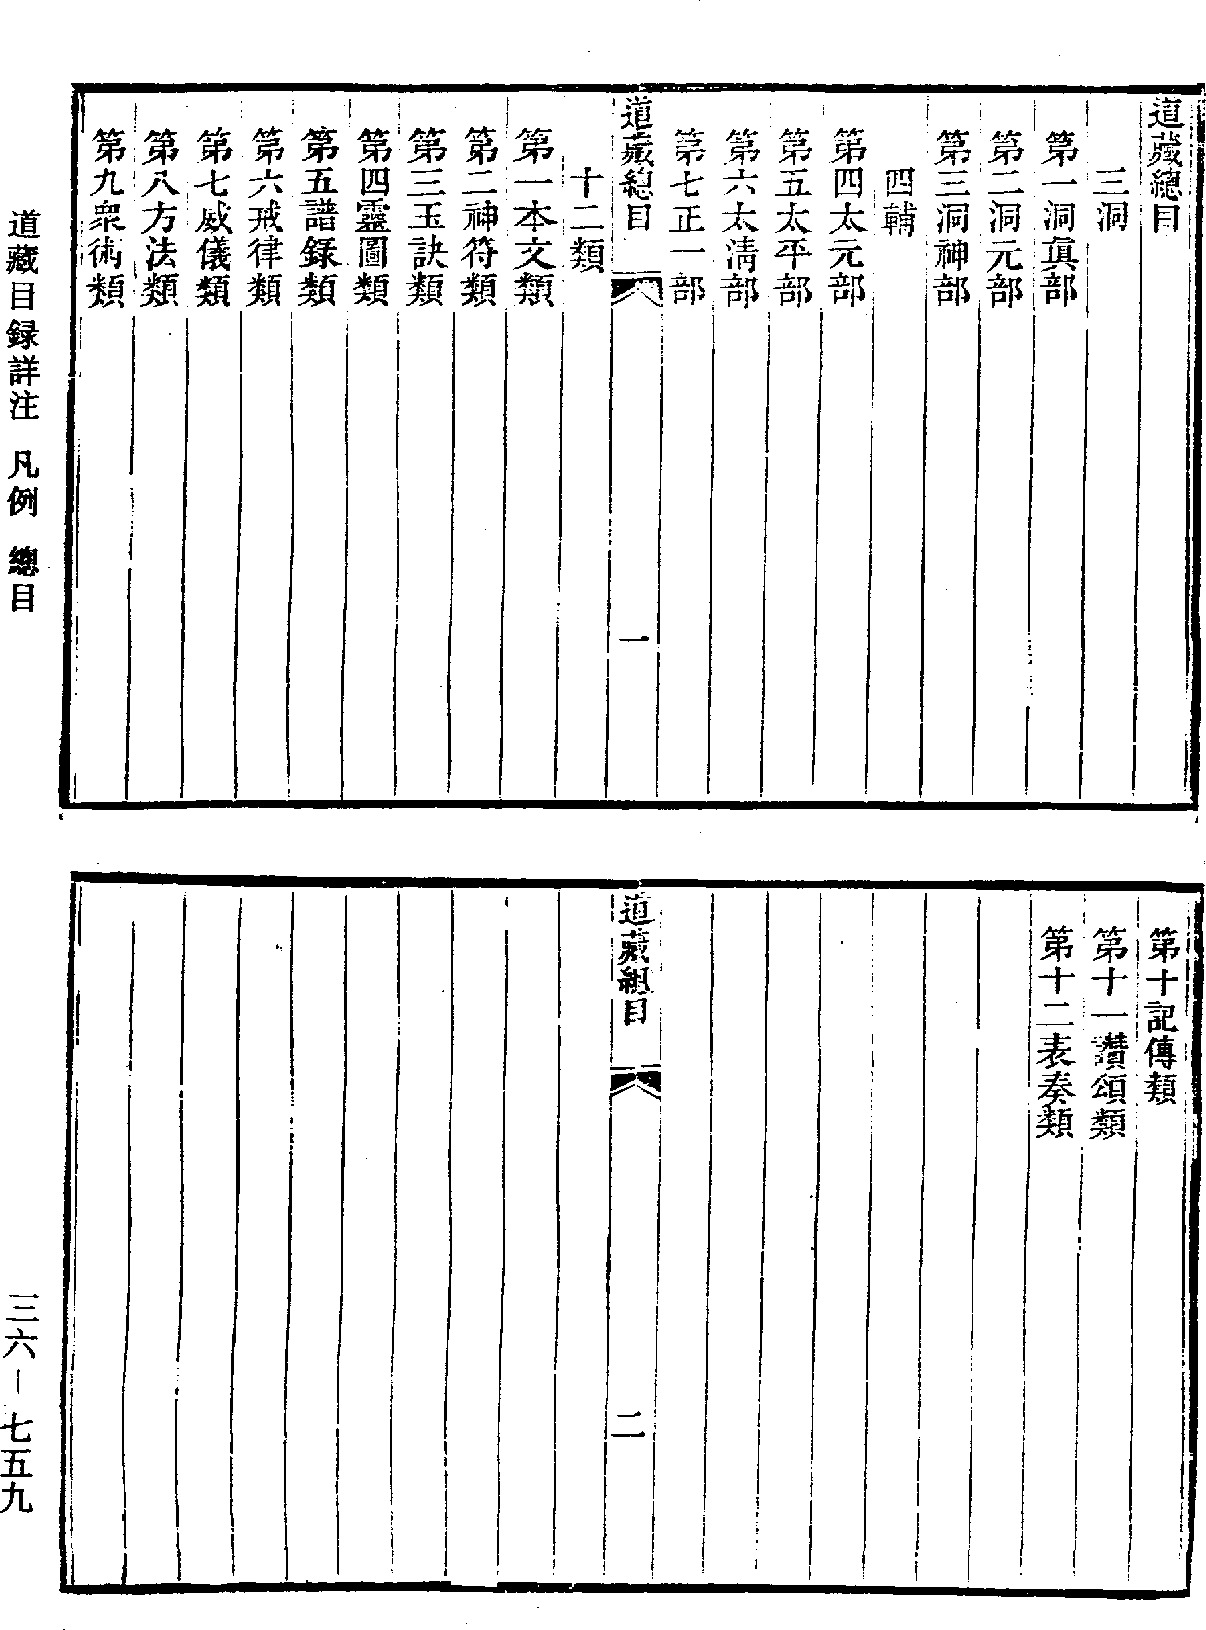 道藏總目
三洞
第一洞眞部
第二洞元部
第三洞神部
四輔
第四太元部
第五太平部
第六太清部
第七正一部
道藏總目
一
十二類
第一本文類
第二神符類
第三玉訣類
第四靈圖類
第五譜錄類
第六戒律類
第七威儀類
第八方法類
第九衆術類
第十記傳類
第十一讚頌類
第十二表奏類
道藏總目
二
道藏目録詳注 凡例 總目
三六－七五九